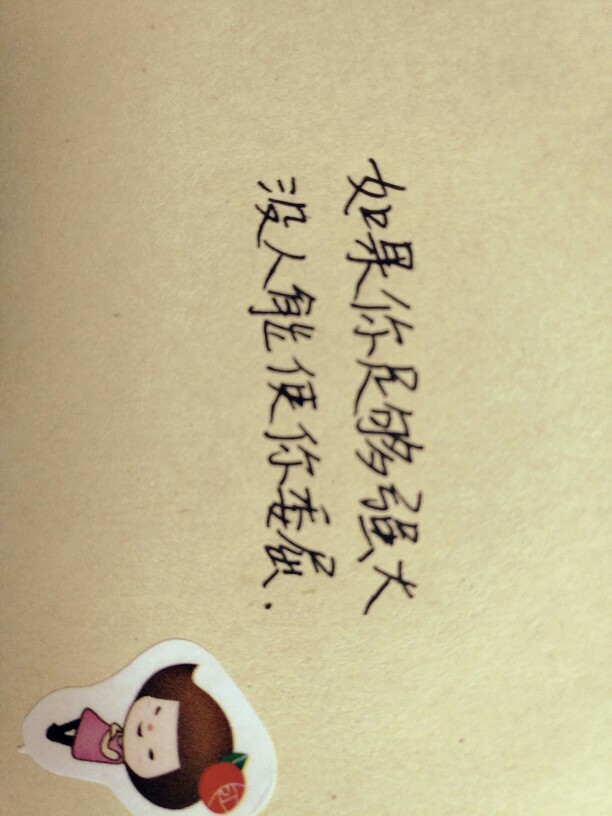 如果你足够强大
没人能使你委屈.
红